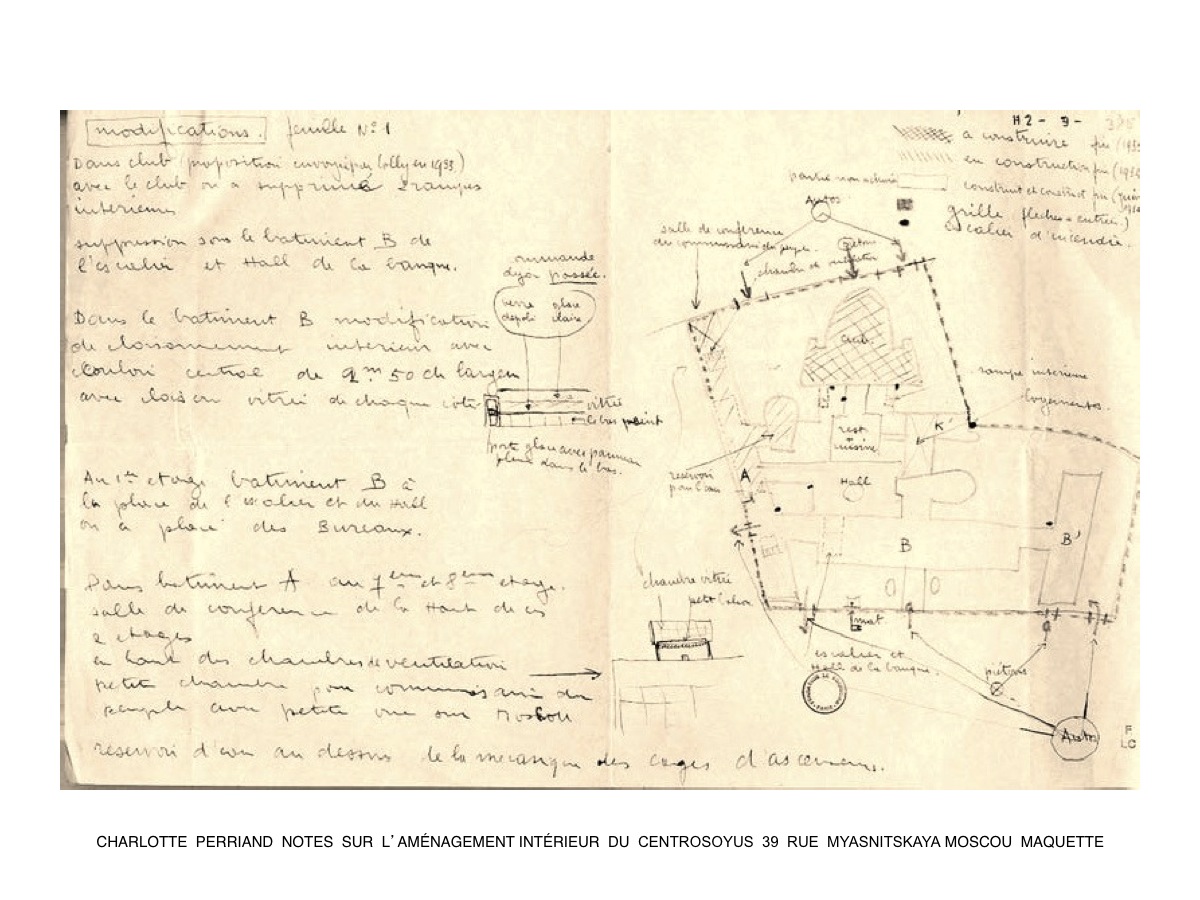 modifications. feuille No 1
Dans club (proposition envoyée par Colly en 1933)
avec le club on a supprimé 2 rampes
interieures
suppression sous le batiment B de
l'escalier et Hall de la banque.
Dans le batiment B modification
de cloisonnement interieur avec
couloir central de 2m50 de largeur
avec cloison vitrée de chaque coté
commande
déja passée.
verre glace
depoli claire
vitrée
porte glace avec panneau
plein dans le bas.
Au 1er etage batiment B à
la place de l'escalier et du Hall
on a placé des Bureaux.
Dans batiment A au 7eme et 8eme etage.
salle de conference de la Haut de ces
2 etages
en haut des chambres de ventilation
petite chambre pour commissaire du
peuple avec petite vue sur Moskou
reservoir d'eau au dessus de la mecanique des cages d'ascenseurs.
H2-9-
à construire
en construction
partie non achevée
construit et
grille fleches = entrée
escalier d'incendie.
Autos
salle de conference
du commissaire du peuple.
pietons
chambre de ventilation
club
rampe interieure
logements.
rest
cuisine
K'
reservoir
pour l'eau
A
Hall
B
B'
chambre vitrée
petit balcon
mat
escalier et
Hall de la banque.
piétons
Autos
F
LC
CHARLOTTE PERRIAND NOTES SUR L'AMÉNAGEMENT INTÉRIEUR DU CENTROSOYUS 39 RUE MYASNITSKAYA MOSCOU MAQUETTE